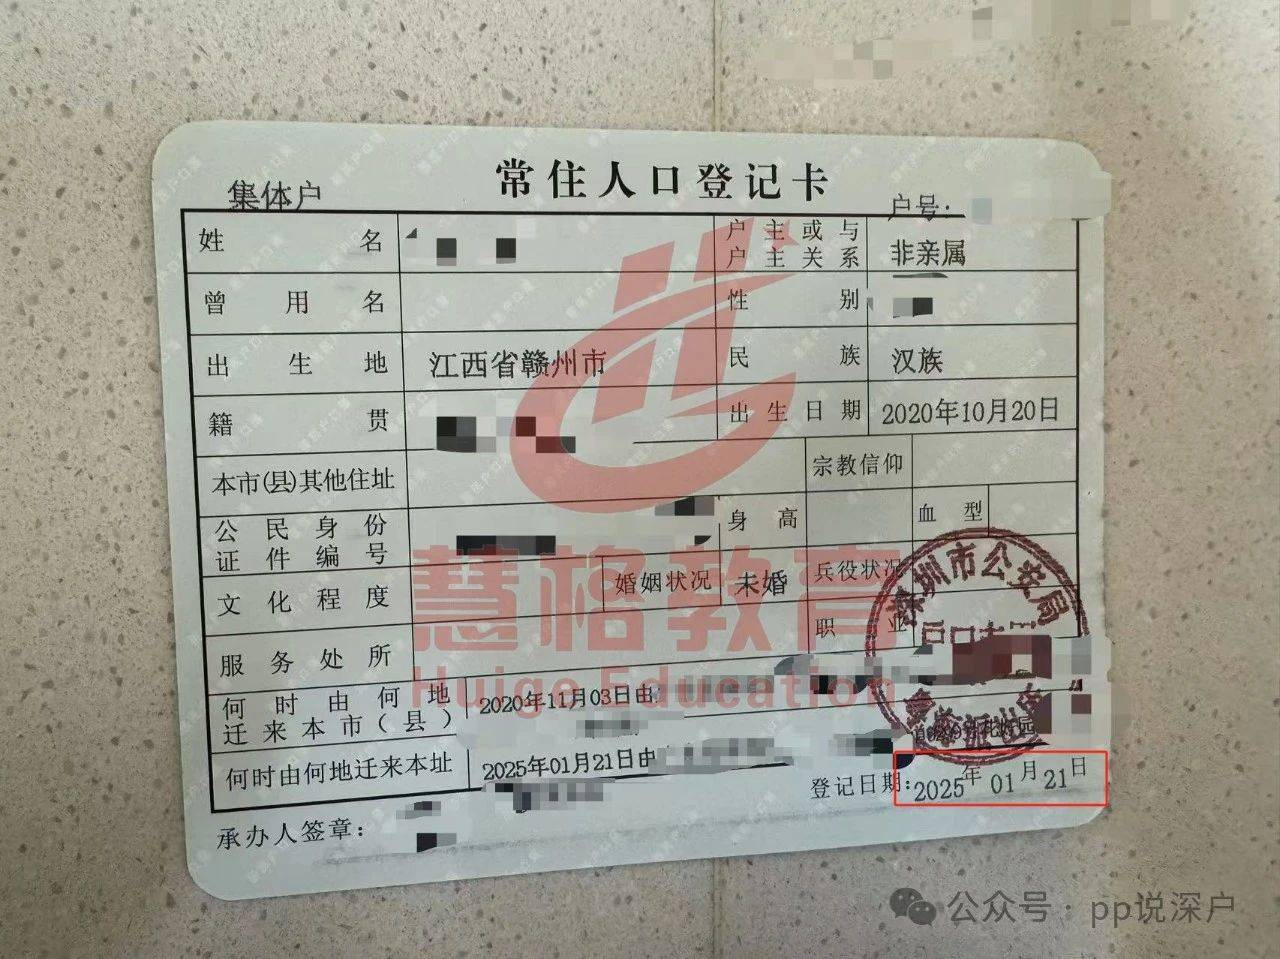 常住人口登记卡
集体户
户号:
姓名
户主或与户主关系 非亲属
曾用名
性别
出生地 江西省赣州市
民族 汉族
籍贯
出生日期 2020年10月20日
本市(县)其他住址
宗教信仰
公民身份证件编号
身高
血型
文化程度
婚姻状况 未婚
兵役状况
服务处所
职业
何时由何地迁来本市(县) 2020年11月03日由
何时由何地迁来本址 2025年01月21日由
登记日期: 2025年01月21日
承办人签章:
深圳市公安局
慧格教育
Huige Education
公众号 · pp说深户